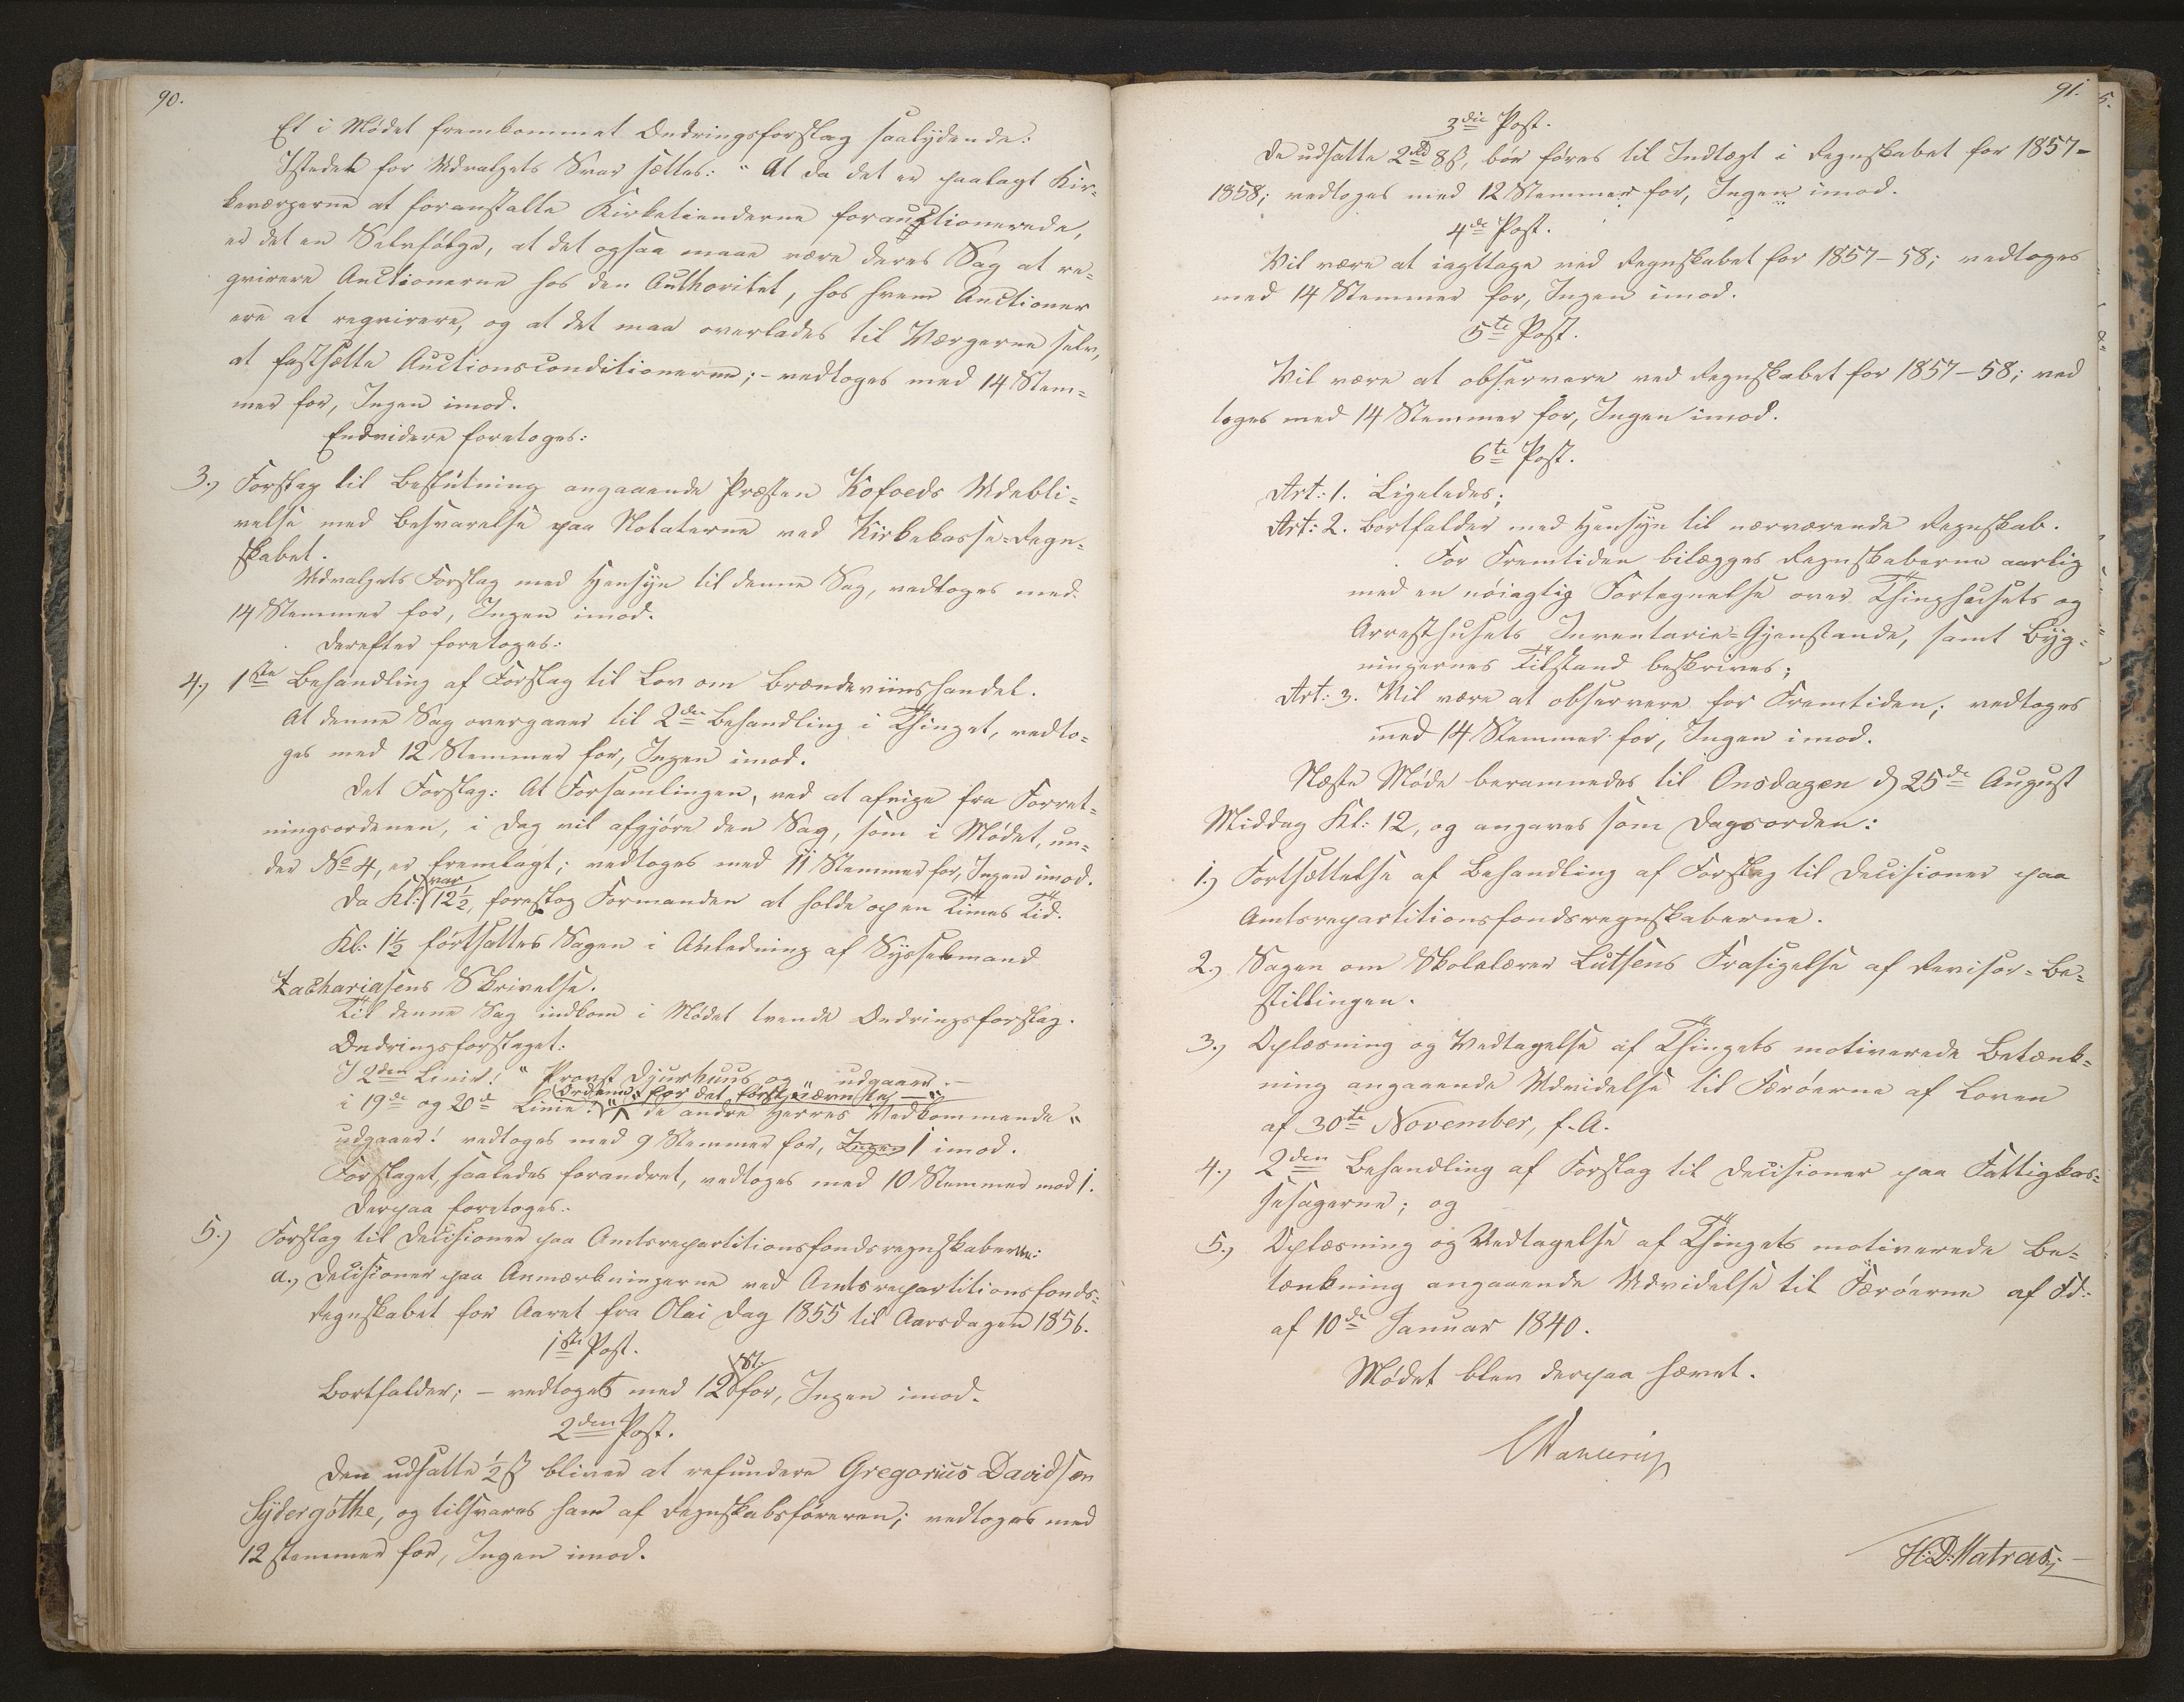 90.
Et i Mødet fremkommet Ændringsforslag saalydende:
Istedet for Udvalgets Svar sættes: "At da det er paalagt Kir-
keværgerne at foranstalte Kirketienderne forauctionerede,
er det en Selvfølge, at det ogsaa maae være deres Sag at re-
qvirere Auctionerne hos den Authoritet, hos hvem Auctioner
ere at reqvirere, og at det maa overlades til Værgerne selv,
at fastsætte Auctionsconditionerne; - vedtoges med 14 Stem-
mer for, Ingen imod.
Endvidere foretoges:
3.) Forslag til Beslutning angaaende Præsten Kofoeds Udebli-
velse med Besvarelse paa Notaterne ved Kirkekasse-Regn-
skabet.
Udvalgets Forslag med Hensyn til denne Sag, vedtoges med
14 Stemmer for, Ingen imod.
Derefter foretoges:
4.) 1ste Behandling af Forslag til Lov om Brændeviinshandel.
At denne Sag overgaaer til 2den Behandling i Thinget, vedto-
ges med 12 Stemmer for, Ingen imod.
Det Forslag: At Forsamlingen, ved at afvige fra Forret-
ningsordenen, i Dag vil afgjøre den Sag, som i Mødet, un-
der No 4, er fremlagt; vedtoges med 11 Stemmer for, Ingen imod.
Da Kl: var 12½, foreslog Formanden at holde op en Times Tid.
Kl: 1½ fortsattes Sagen i Anledning af Sysselmand
Zachariasens Skrivelse.
Til denne Sag indkom i Mødet tvende Ændringsforslag.
Ændringsforslaget:
I 2den Linie! "Provst Djurhuus og" udgaaer. —
Ordene: "for det førstnævntes —"
i 19de og 20de Linie: "de andre Herrers Vedkommende"
udgaaer! vedtoges med 9 Stemmer for, Ingen 1 imod.
Forslaget, saaledes forandret, vedtoges med 10 Stemmer mod 1.
Derpaa foretoges:
5.) Forslag til Decisioner paa Amtsrepartitionsfondsregnskaberne:
a.) Decisioner paa Anmærkningerne ved Amtsrepartitionsfonds-
regnskabet for Aaret fra Olai Dag 1855 til Aarsdagen 1856.
1ste Post.
Bortfalder; - vedtoges med 12 St. for, Ingen imod.
2den Post.
Den udsatte ½ ß bliver at refundere Gregorius Davidsen
Sydergøthe, og tilsvares ham af Regnskabsføreren; vedtoges med
12 stemmer for, Ingen imod.
91.
3die Post.
De udsatte 2 rd 8 ß, bør føres til Indtægt i Regnskabet for 1857-
1858; vedtoges med 12 Stemmer for, Ingen imod.
4de Post.
Vil være at iagttage ved Regnskabet for 1857-58; vedtoges
med 14 Stemmer for, Ingen imod.
5te Post.
Vil være at observere ved Regnskabet for 1857-58; ved
toges med 14 Stemmer for, Ingen imod.
6te Post.
Art: 1. Ligeledes;
Art: 2. Bortfalder med Hensyn til nærværende Regnskab.
For Fremtiden bilægges Regnskaberne aarlig
med en nøiagtig Fortegnelse over Thinghusets og
Arresthusets Inventarie-Gjenstande, samt Byg-
ningernes Tilstand beskrives;
Art: 3. Vil være at observere for Fremtiden; vedtoges
med 14 Stemmer for, Ingen imod.
Næste Møde berammedes til Onsdagen d 25de August
Middag Kl: 12, og angaves som Dagsorden:
1.) Fortsættelse af Behandling af Forslag til Decisioner paa
Amtsrepartitionsfondsregnskaberne.
2.) Sagen om Skolelærer Lützens Frasigelse af Revisor-Be-
stillingen.
3.) Oplæsning og Vedtagelse af Thingets motiverede Betænk-
ning angaaende Udvidelse til Færøerne af Loven
af 30te November, f. A.
4.) 2den Behandling af Forslag til Decisioner paa Fattigkas-
sesagerne; og
5.) Oplæsning og Vedtagelse af Thingets motiverede Be-
tænkning angaaende Udvidelse til Færøerne af Fd:
af 10de Januar 1840.
Mødet blev derpaa hævet.
H: D: Matras;